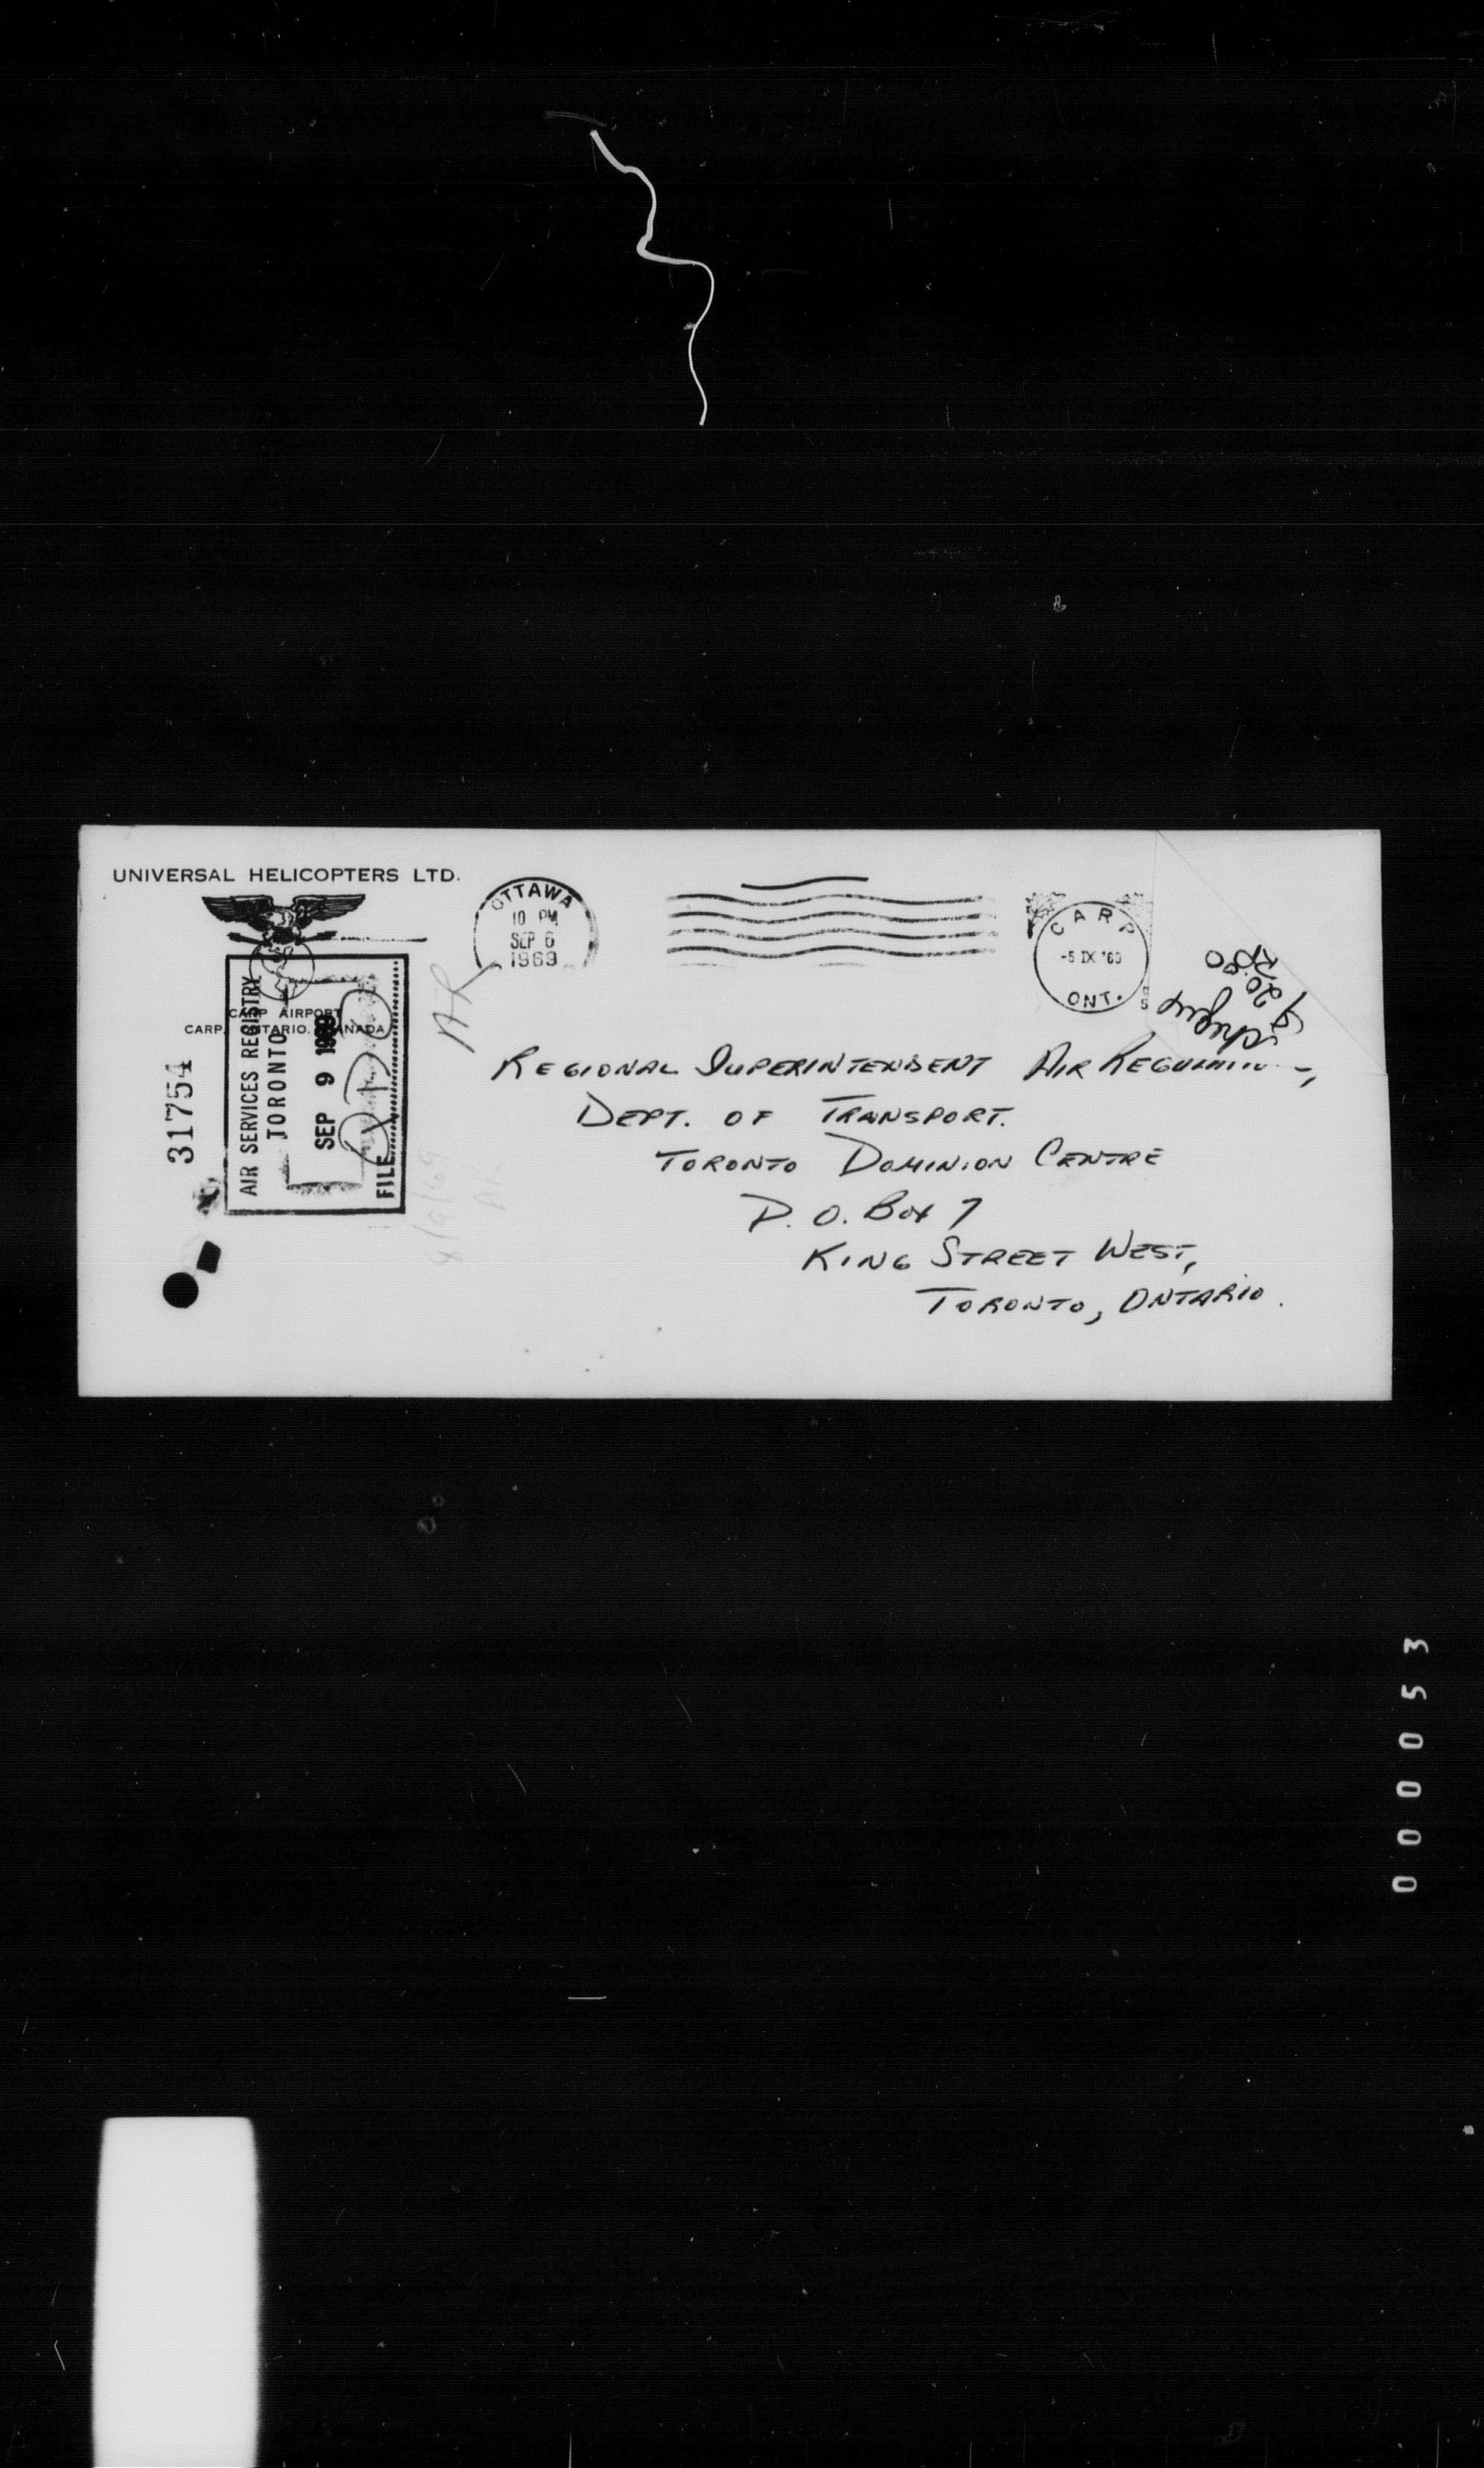 UNIVERSAL HELICOPTERS LTD.
CARP AIRPORT
CARP, ONTARIO, CANADA
OTTAWA
10 PM
SEP 6
1969
CARP
-5 IX '69
ONT.
AR
31754
AIR SERVICES REGISTRY
TORONTO
SEP 9 1969
FILE
REGIONAL SUPERINTENDENT AIR
DEPT. OF TRANSPORT.
TORONTO DOMINION CENTRE
P.O. BOX 7
KING STREET WEST,
TORONTO, ONTARIO.
000053